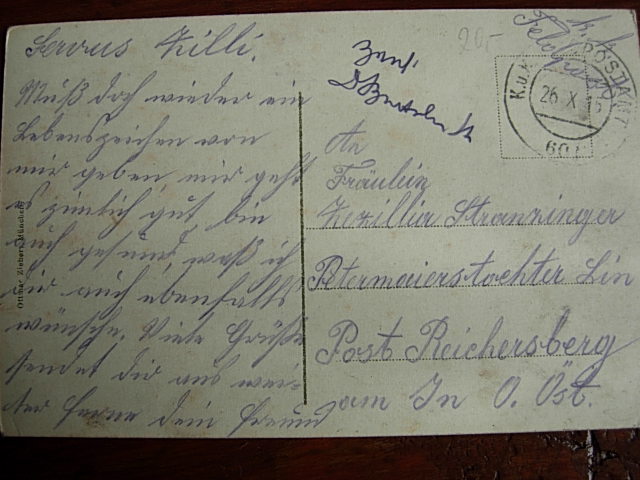 Servus Zilli.
Muß doch wieder ein
Lebenszeichen von
mir geben mir geht
es zimlich gut bin
auch gesund, waß ich
dir auch ebenfalls
wünsche. Viele Grüße
sendet dir aus wei-
ter ferne dein Freund
Ottmar Zieher, München
20-
Zens.
Feldpost
K.u.K.
POSTAMT
26 X 15
An
Fräulein
Zezillia Stranzinger
Petermaierstochter Lin
Post Reichersberg
am In O. Öst.